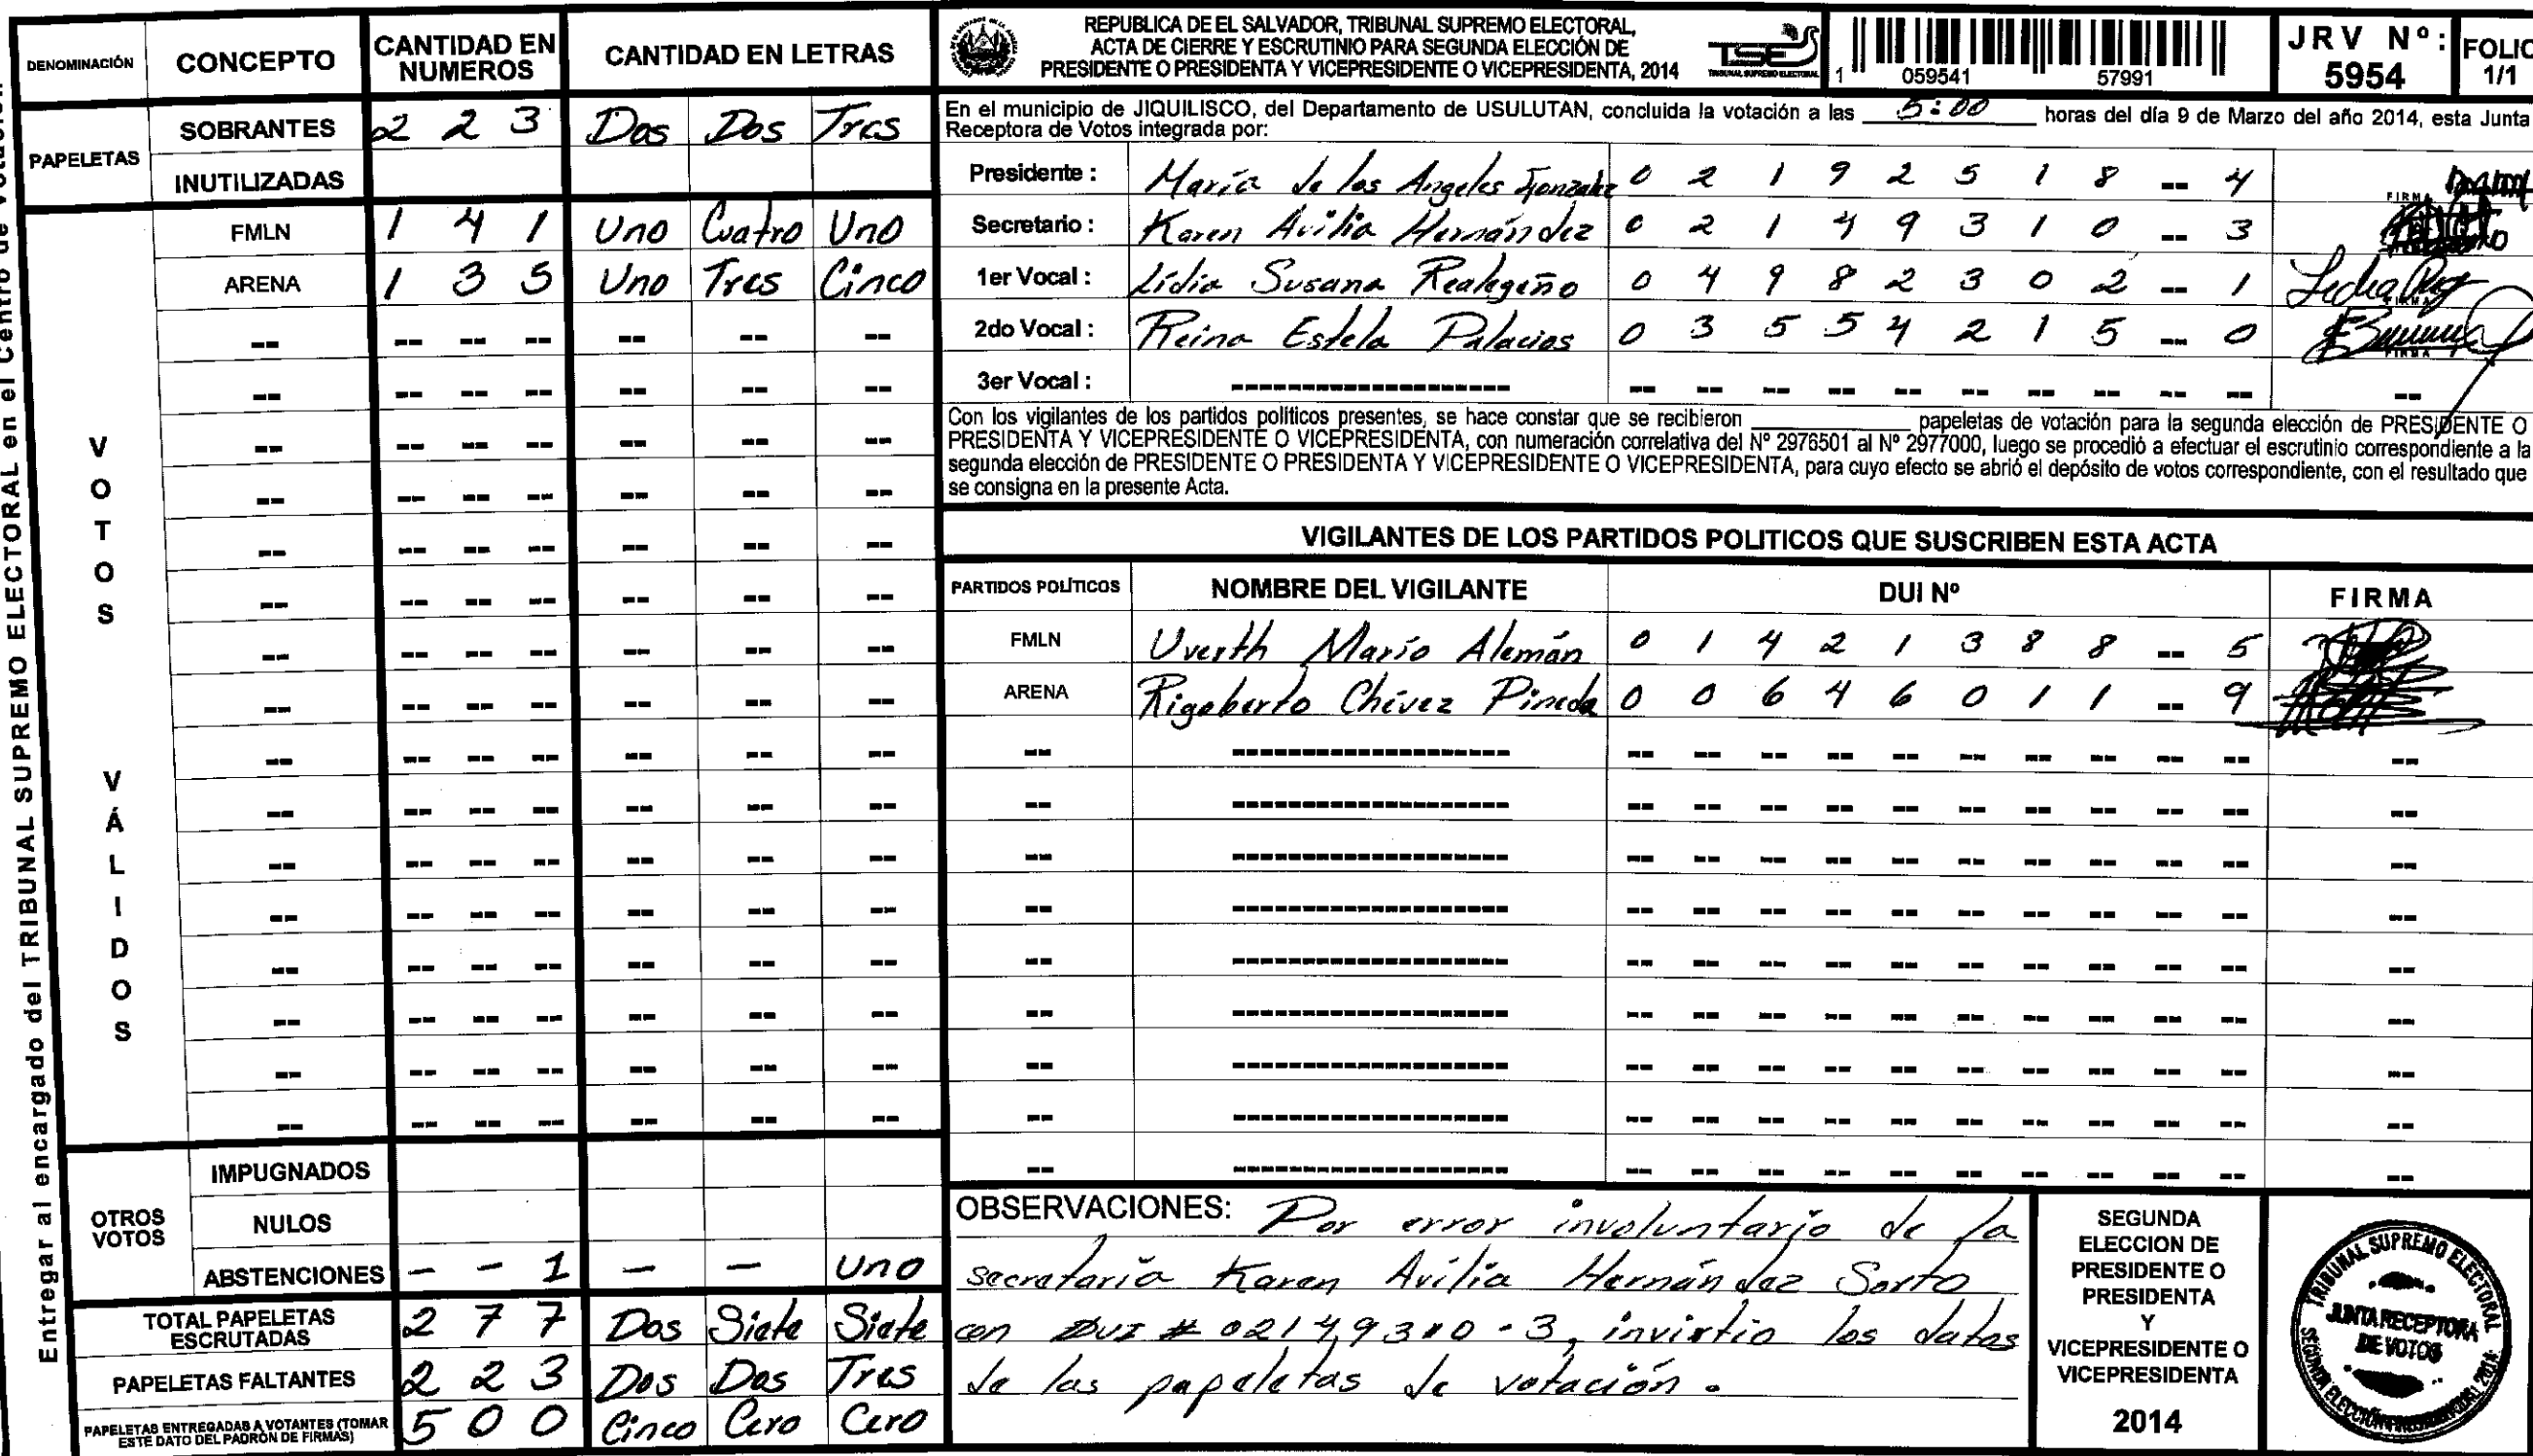 Entregar al encargado del TRIBUNAL SUPREMO ELECTORAL en el Centro de Votación
DENOMINACIÓN CONCEPTO CANTIDAD EN NUMEROS CANTIDAD EN LETRAS
PAPELETAS
SOBRANTES 2 2 3 Dos Dos Tres
INUTILIZADAS
VOTOS VÁLIDOS
FMLN 1 4 1 Uno Cuatro Uno
ARENA 1 3 5 Uno Tres Cinco
OTROS VOTOS
IMPUGNADOS
NULOS
ABSTENCIONES - - 1 - - Uno
TOTAL PAPELETAS ESCRUTADAS 2 7 7 Dos Siete Siete
PAPELETAS FALTANTES 2 2 3 Dos Dos Tres
PAPELETAS ENTREGADAS A VOTANTES (TOMAR ESTE DATO DEL PADRÓN DE FIRMAS) 5 0 0 Cinco Cero Cero
REPUBLICA DE EL SALVADOR, TRIBUNAL SUPREMO ELECTORAL,
ACTA DE CIERRE Y ESCRUTINIO PARA SEGUNDA ELECCIÓN DE
PRESIDENTE O PRESIDENTA Y VICEPRESIDENTE O VICEPRESIDENTA, 2014
TSE
TRIBUNAL SUPREMO ELECTORAL
1 059541 57991
JRV Nº: 5954
FOLIO 1/1
En el municipio de JIQUILISCO, del Departamento de USULUTAN, concluida la votación a las 5:00 horas del día 9 de Marzo del año 2014, esta Junta
Receptora de Votos integrada por:
Presidente : María de los Angeles Gonzalez 0 2 1 9 2 5 1 8 -- 4 FIRMA
Secretario : Karen Avilia Hernández 0 2 1 4 9 3 1 0 -- 3
1er Vocal : Lidia Susana Realegeño 0 4 9 8 2 3 0 2 -- 1 FIRMA
2do Vocal : Reina Estela Palacios 0 3 5 5 4 2 1 5 -- 0 FIRMA
3er Vocal : -------------------- -- -- -- -- -- -- -- -- -- -- --
Con los vigilantes de los partidos políticos presentes, se hace constar que se recibieron ________ papeletas de votación para la segunda elección de PRESIDENTE O
PRESIDENTA Y VICEPRESIDENTE O VICEPRESIDENTA, con numeración correlativa del Nº 2976501 al Nº 2977000, luego se procedió a efectuar el escrutinio correspondiente a la
segunda elección de PRESIDENTE O PRESIDENTA Y VICEPRESIDENTE O VICEPRESIDENTA, para cuyo efecto se abrió el depósito de votos correspondiente, con el resultado que
se consigna en la presente Acta.
VIGILANTES DE LOS PARTIDOS POLITICOS QUE SUSCRIBEN ESTA ACTA
PARTIDOS POLÍTICOS NOMBRE DEL VIGILANTE DUI Nº FIRMA
FMLN Uverth Mario Alemán 0 1 4 2 1 3 8 8 -- 5
ARENA Rigoberto Chévez Pineda 0 0 6 4 6 0 1 1 -- 9
OBSERVACIONES: Por error involuntario de la
secretaria Karen Avilia Hernández Sorto
con DUI # 02149310-3, invirtio los datos
de las papeletas de votación.
SEGUNDA
ELECCION DE
PRESIDENTE O
PRESIDENTA
Y
VICEPRESIDENTE O
VICEPRESIDENTA
2014
TRIBUNAL SUPREMO ELECTORAL
JUNTA RECEPTORA
DE VOTOS